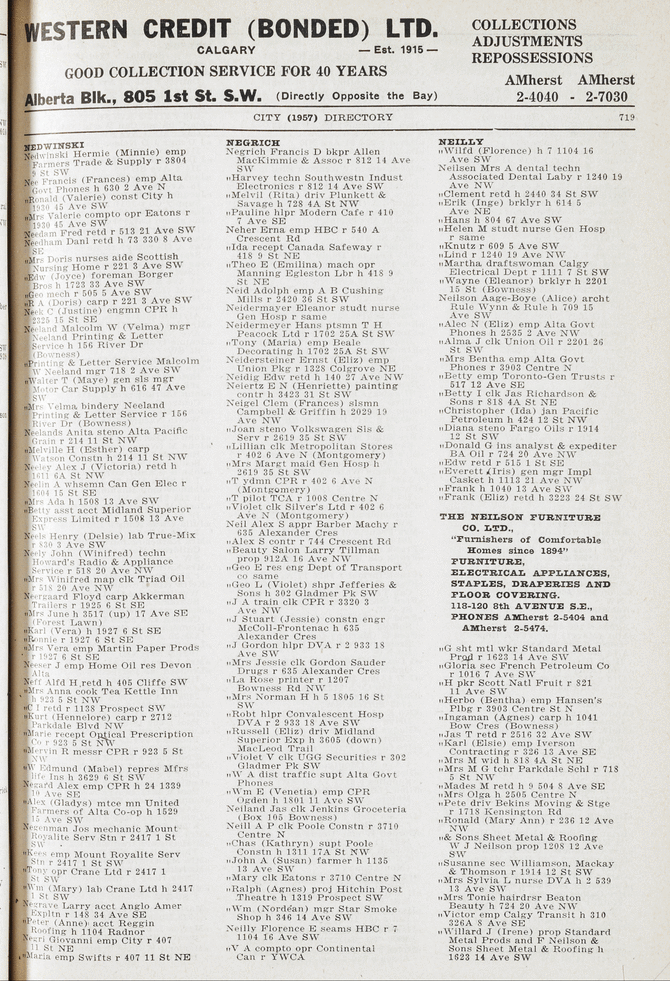 WESTERN CREDIT (BONDED) LTD.
CALGARY — Est. 1915 —
GOOD COLLECTION SERVICE FOR 40 YEARS
Alberta Blk., 805 1st St. S.W. (Directly Opposite the Bay)
COLLECTIONS
ADJUSTMENTS
REPOSSESSIONS
AMherst AMherst
2-4040 - 2-7030
CITY (1957) DIRECTORY 719
NEDWINSKI
Nedwinski Hermie (Minnie) emp
Farmers Trade & Supply r 3804
9 St SW
Nee Francis (Frances) emp Alta
Govt Phones h 630 2 Ave N
„Ronald (Valerie) const City h
1930 45 Ave SW
„Mrs Valerie compto opr Eatons r
1930 45 Ave SW
Needam Fred retd r 513 21 Ave SW
Needham Danl retd h 73 330 8 Ave
SE
„Mrs Doris nurses aide Scottish
Nursing Home r 221 3 Ave SW
„Edw (Joyce) foreman Borger
Bros h 1723 33 Ave SW
„Geo mech r 505 5 Ave SW
„R A (Doris) carp r 221 3 Ave SW
Neek C (Justine) engmn CPR h
2325 15 St SE
Neeland Malcolm W (Velma) mgr
Neeland Printing & Letter
Service h 156 River Dr
(Bowness)
„Printing & Letter Service Malcolm
W Neeland mgr 718 2 Ave SW
„Walter T (Maye) gen sls mgr
Motor Car Supply h 616 47 Ave
SW
„Mrs Velma bindery Neeland
Printing & Letter Service r 156
River Dr (Bowness)
Neelands Anita steno Alta Pacific
Grain r 214 11 St NW
„Melville H (Esther) carp
Watson Constn h 214 11 St NW
Neeley Alex J (Victoria) retd h
1611 6A St NW
Neelin A whsemn Can Gen Elec r
1604 15 St SE
„Mrs Ada h 1508 13 Ave SW
„Betty asst acct Midland Superior
Express Limited r 1508 13 Ave
SW
Neels Henry (Delsie) lab True-Mix
r 830 3 Ave SW
Neely John (Winifred) techn
Howard's Radio & Appliance
Service r 518 20 Ave NW
„Mrs Winifred map clk Triad Oil
r 518 20 Ave NW
Neergaard Floyd carp Akkerman
Trailers r 1925 6 St SE
„Mrs June h 3517 (up) 17 Ave SE
(Forest Lawn)
„Karl (Vera) h 1927 6 St SE
„Ronnie r 1927 6 St SE
„Mrs Vera emp Martin Paper Prods
r 1927 6 St SE
Neeser J emp Home Oil res Devon
Alta
Neff Alfd H retd h 405 Cliffe SW
„Mrs Anna cook Tea Kettle Inn
h 923 5 St NW
„C I retd r 1138 Prospect SW
„Kurt (Hennelore) carp r 2712
Parkdale Blvd NW
„Marie recept Optical Prescription
Co r 923 5 St NW
„Mervin R messr CPR r 923 5 St
NW
„W Edmund (Mabel) repres Mfrs
life Ins h 3629 6 St SW
Negard Alex emp CPR h 24 1339
10 Ave SE
„Alex (Gladys) mtce mn United
Farmers of Alta Co-op h 1529
15 Ave SW
Negenman Jos mechanic Mount
Royalite Serv Stn r 2417 1 St
SW
„Kees emp Mount Royalite Serv
Stn r 2417 1 St SW
„Tony opr Crane Ltd r 2417 1
St SW
„Wm (Mary) lab Crane Ltd h 2417
1 St SW
Negrave Larry acct Anglo Amer
Expltn r 148 34 Ave SE
„Peter (Anne) acct Reggin
Roofing h 1104 Radnor
Negri Giovanni emp City r 407
11 St NE
„Maria emp Swifts r 407 11 St NE
NEGRICH
Negrich Francis D bkpr Allen
MacKimmie & Assoc r 812 14 Ave
SW
„Harvey techn Southwestn Indust
Electronics r 812 14 Ave SW
„Melvil (Rita) driv Plunkett &
Savage h 728 4A St NW
„Pauline hlpr Modern Cafe r 410
7 Ave SE
Neher Erna emp HBC r 540 A
Crescent Rd
„Ida recept Canada Safeway r
418 9 St NE
„Theo E (Emilina) mach opr
Manning Egleston Lbr h 418 9
St NE
Neid Adolph emp A B Cushing
Mills r 2420 36 St SW
Neidermayer Eleanor studt nurse
Gen Hosp r same
Neidermeyer Hans ptsmn T H
Peacock Ltd r 1702 25A St SW
„Tony (Maria) emp Beale
Decorating h 1702 25A St SW
Neidersteiner Ernst (Eliz) emp
Union Pkg r 1328 Colgrove NE
Neidig Edw retd h 140 27 Ave NW
Neiertz E N (Henriette) painting
contr h 3423 31 St SW
Neigel Clem (Frances) slsmn
Campbell & Griffin h 2029 19
Ave NW
„Joan steno Volkswagen Sls &
Serv r 2619 35 St SW
„Lillian clk Metropolitan Stores
r 402 6 Ave N (Montgomery)
„Mrs Margt maid Gen Hosp h
2619 35 St SW
„T ydmn CPR r 402 6 Ave N
(Montgomery)
„T pilot TCA r 1008 Centre N
„Violet clk Silver's Ltd r 402 6
Ave N (Montgomery)
Neil Alex S appr Barber Machy r
635 Alexander Cres
„Alex S contr r 744 Crescent Rd
„Beauty Salon Larry Tillman
prop 912A 16 Ave NW
„Geo E res eng Dept of Transport
co same
„Geo L (Violet) shpr Jefferies &
Sons h 302 Gladmer Pk SW
„J A train clk CPR r 3320 3
Ave NW
„J Stuart (Jessie) constn engr
McColl-Frontenac h 635
Alexander Cres
„J Gordon hlpr DVA r 2 933 18
Ave SW
„Mrs Jessie clk Gordon Sauder
Drugs r 635 Alexander Cres
„La Rose printer r 1207
Bowness Rd NW
„Mrs Norman H h 5 1805 16 St
SW
„Robt hlpr Convalescent Hosp
DVA r 2 933 18 Ave SW
„Russell (Eliz) driv Midland
Superior Exp h 3605 (down)
MacLeod Trail
„Violet V clk UGG Securities r 302
Gladmer Pk SW
„W A dist traffic supt Alta Govt
Phones
„Wm E (Venetia) emp CPR
Ogden h 1801 11 Ave SW
Neiland Jas clk Jenkins Groceteria
(Box 105 Bowness)
Neill A P clk Poole Constn r 3710
Centre N
„Chas (Kathryn) supt Poole
Constn h 1311 17A St NW
„John A (Susan) farmer h 1135
13 Ave SW
„Mary clk Eatons r 3710 Centre N
„Ralph (Agnes) proj Hitchin Post
Theatre h 1319 Prospect SW
„Wm (Nordean) mgr Star Smoke
Shop h 346 14 Ave SW
Neilly Florence E seams HBC r 7
1104 16 Ave SW
„V A compto opr Continental
Can r YWCA
NEILLY
„Wilfd (Florence) h 7 1104 16
Ave SW
Neilsen Mrs A dental techn
Associated Dental Laby r 1240 19
Ave NW
„Clement retd h 2440 34 St SW
„Erik (Inge) brklyr h 614 5
Ave NE
„Hans h 804 67 Ave SW
„Helen M studt nurse Gen Hosp
r same
„Knutz r 609 5 Ave SW
„Lind r 1240 19 Ave NW
„Martha draftswoman Calgy
Electrical Dept r 1111 7 St SW
„Wayne (Eleanor) brklyr h 2201
15 St (Bowness)
Neilson Aage-Boye (Alice) archt
Rule Wynn & Rule h 709 15
Ave SW
„Alec N (Eliz) emp Alta Govt
Phones h 2535 2 Ave NW
„Alma J clk Union Oil r 2201 26
St SW
„Mrs Bentha emp Alta Govt
Phones r 3903 Centre N
„Betty emp Toronto-Gen Trusts r
517 12 Ave SE
„Betty I clk Jas Richardson &
Sons r 818 4A St NE
„Christopher (Ida) jan Pacific
Petroleum h 424 12 St NW
„Diana steno Fargo Oils r 1914
12 St SW
„Donald G ins analyst & expediter
BA Oil r 724 20 Ave NW
„Edw retd r 515 1 St SE
„Everett (Iris) gen mgr Impl
Casket h 1113 21 Ave NW
„Frank h 1040 13 Ave SW
„Frank (Eliz) retd h 3223 24 St SW
THE NEILSON FURNITURE
CO. LTD.,
"Furnishers of Comfortable
Homes since 1894"
FURNITURE,
ELECTRICAL APPLIANCES,
STAPLES, DRAPERIES AND
FLOOR COVERING.
118-120 8th AVENUE S.E.,
PHONES AMherst 2-5404 and
AMherst 2-5474.
„G sht mtl wkr Standard Metal
Prod r 1623 14 Ave SW
„Gloria sec French Petroleum Co
r 1016 7 Ave SW
„H pkr Scott Natl Fruit r 821
11 Ave SW
„Herbo (Bentha) emp Hansen's
Plbg r 3903 Centre St N
„Ingaman (Agnes) carp h 1041
Bow Cres (Bowness)
„Jas T retd r 2516 32 Ave SW
„Karl (Elsie) emp Iverson
Contracting r 326 13 Ave SE
„Mrs M wid h 818 4A St NE
„Mrs M G tchr Parkdale Schl r 718
5 St NW
„Mades M retd h 9 504 8 Ave SE
„Mrs Olga h 2505 Centre N
„Pete driv Bekins Moving & Stge
r 1718 Kensington Rd
„Ronald (Mary Ann) r 236 12 Ave
NW
„& Sons Sheet Metal & Roofing
W J Neilson prop 1208 12 Ave
SW
„Susanne sec Williamson, Mackay
& Thomson r 1914 12 St SW
„Mrs Sylvia L nurse DVA h 2 539
13 Ave SW
„Mrs Tonie hairdrsr Beaton
Beauty h 724 20 Ave NW
„Victor emp Calgy Transit h 310
326A 8 Ave SE
„Willard J (Irene) prop Standard
Metal Prods and F Neilson &
Sons Sheet Metal & Roofing h
1623 14 Ave SW